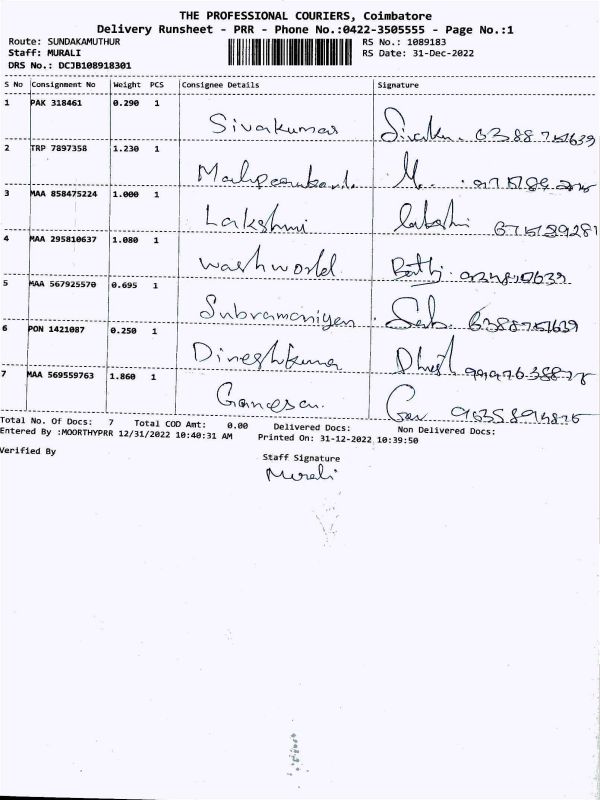 THE PROFESSIONAL COURIERS, Coimbatore
Delivery Runsheet - PRR - Phone No.:0422-3505555 - Page No.:1
Route: SUNDAKAMUTHUR RS No.: 1089183
Staff: MURALI RS Date: 31-Dec-2022
DRS No.: DCJB108918301
S No Consignment No Weight PCS Consignee Details Signature
1 PAK 318461 0.290 1 Sivakumar 6388751639
2 TRP 7897358 1.230 1
3 MAA 858475224 1.000 1 Lakshmi
4 MAA 295810637 1.080 1 washworld
5 MAA 567925570 0.695 1 Subramaniyen 6388751639
6 PON 1421087 0.250 1 Dineshkumar
7 MAA 569559763 1.860 1 Ganesan
Total No. Of Docs: 7 Total COD Amt: 0.00 Delivered Docs: Non Delivered Docs:
Entered By :MOORTHYPRR 12/31/2022 10:40:31 AM Printed On: 31-12-2022 10:39:50
Verified By Staff Signature
Murali